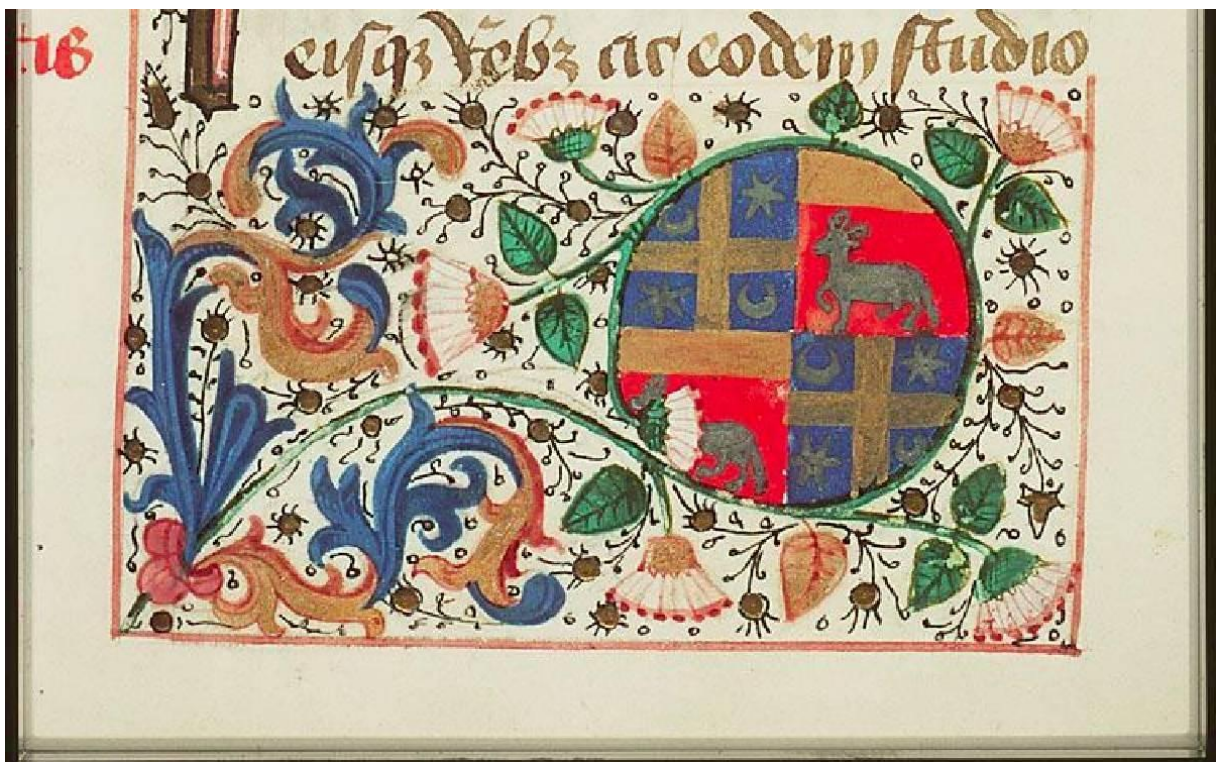 tis
eisqꝫ rebꝫ ac eodem studio